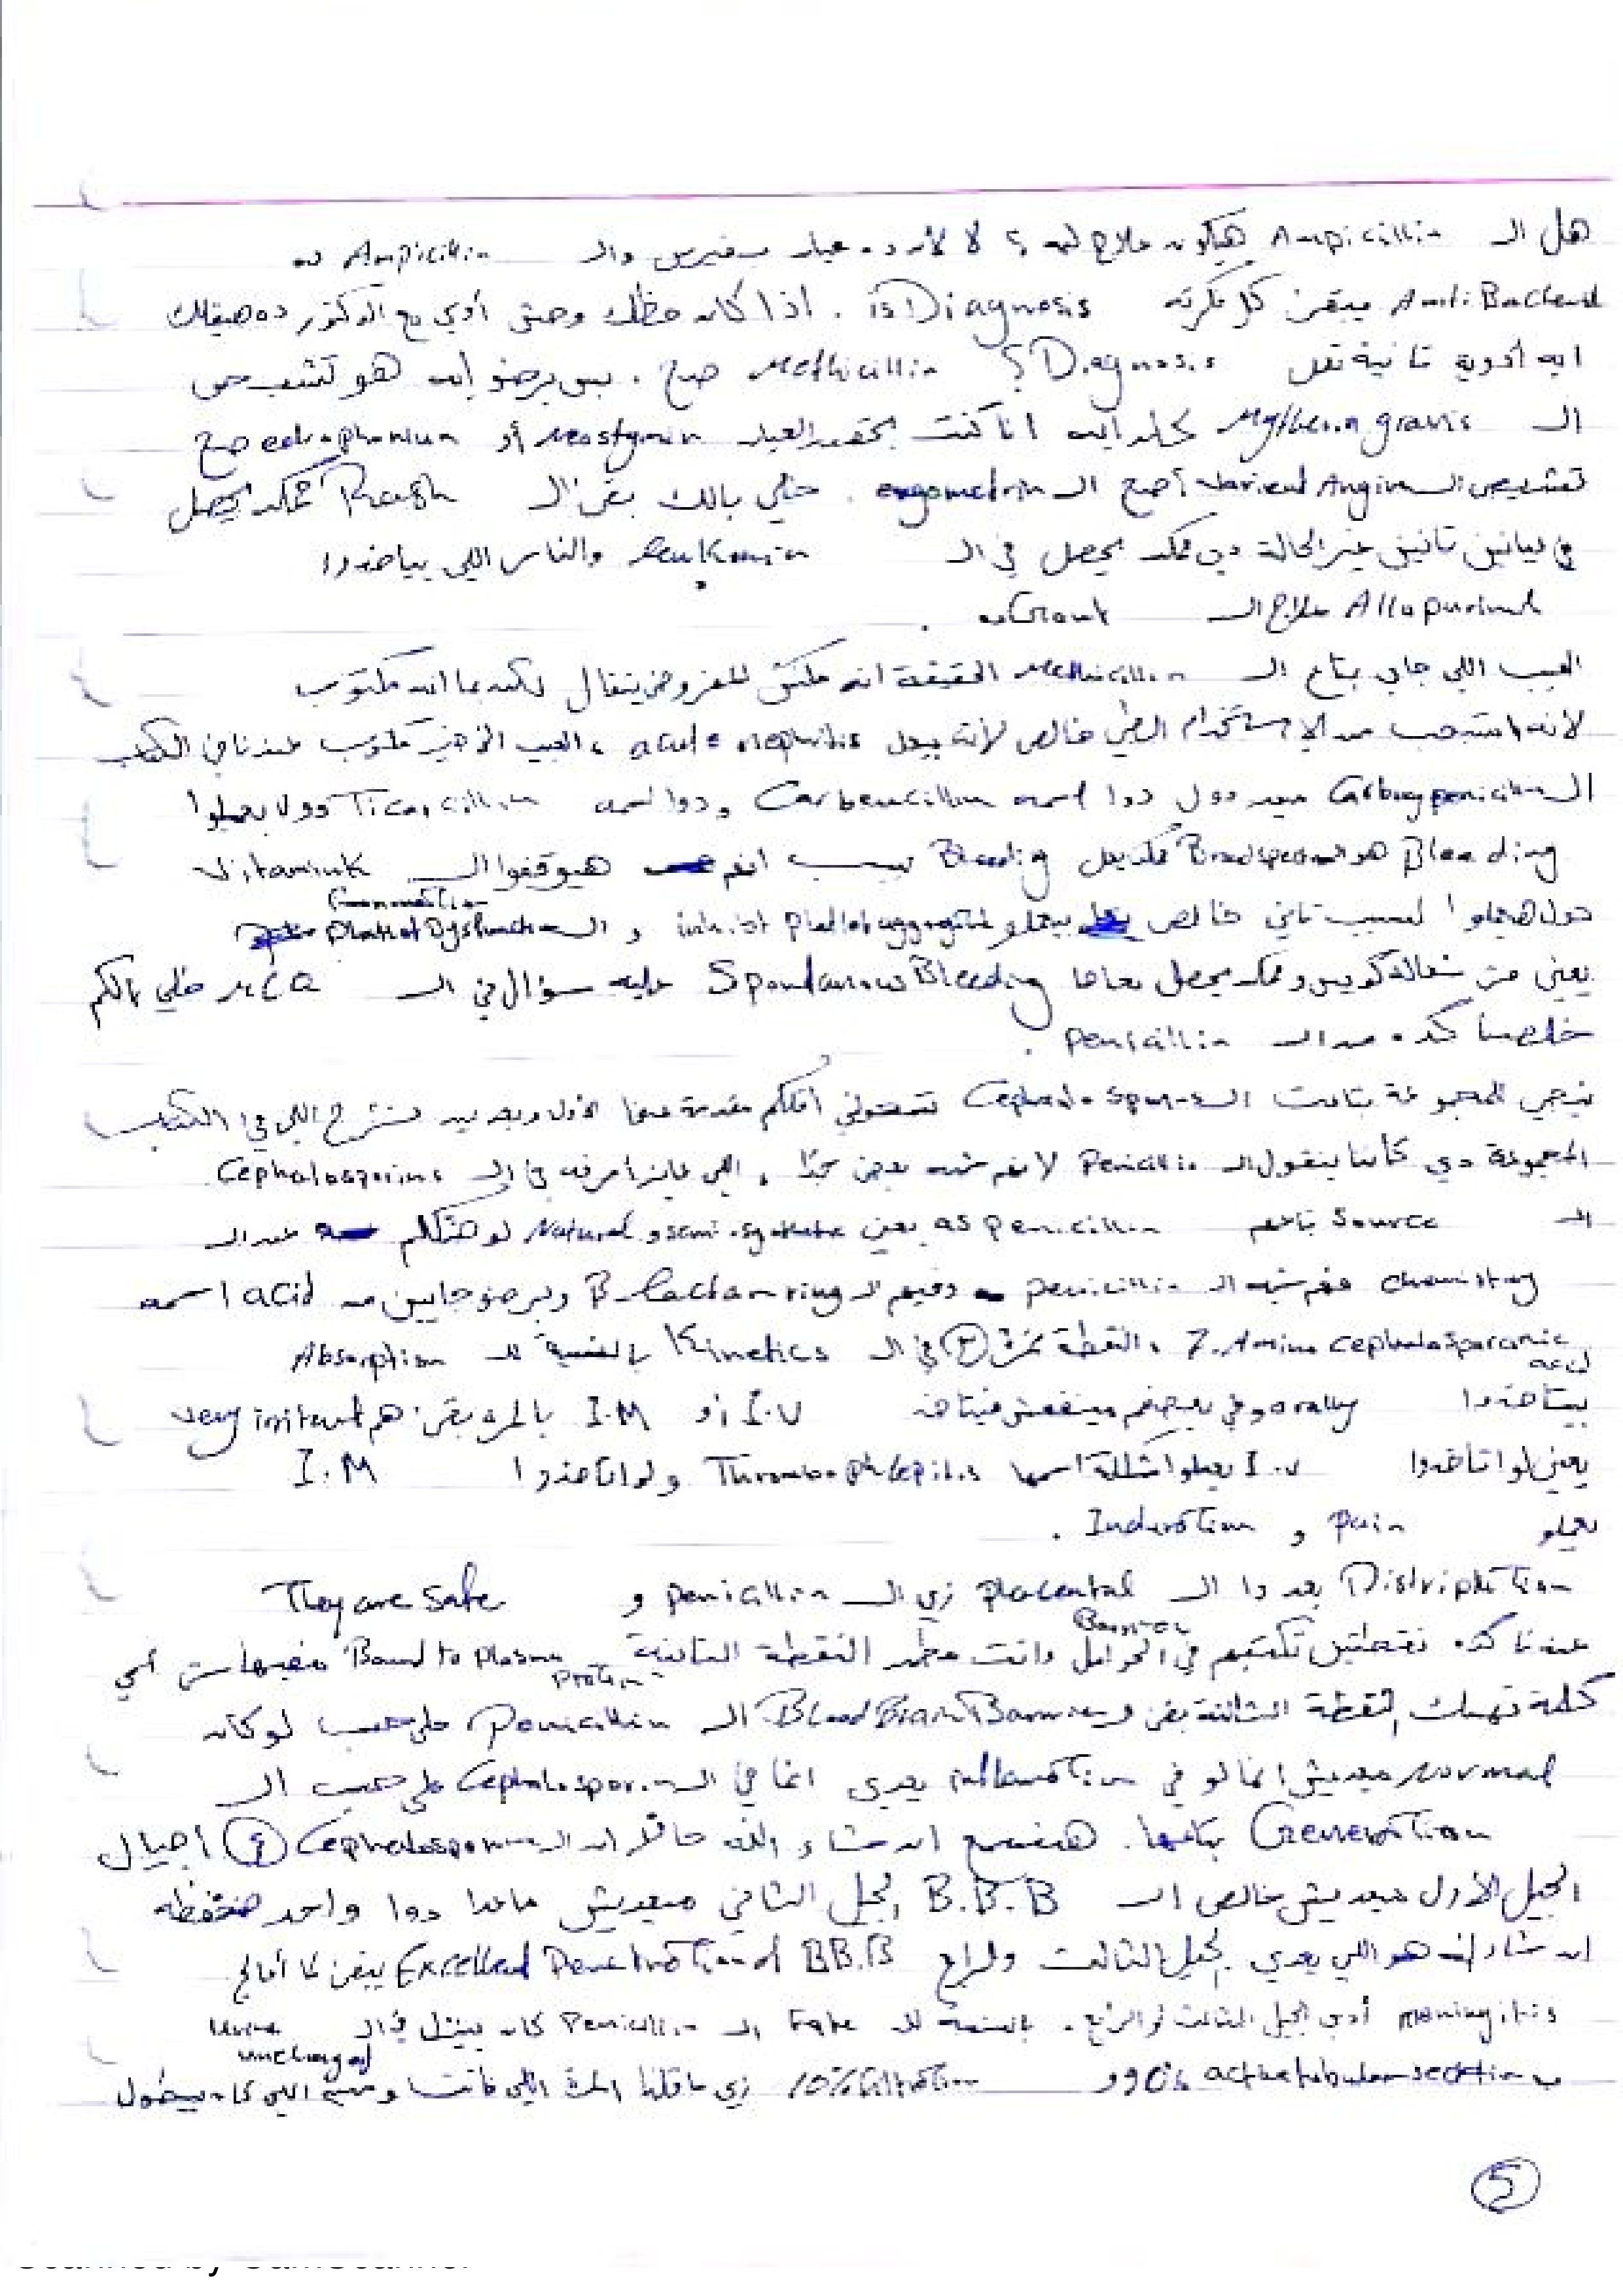 هل الـ Ampicillin هيكون علاج ليه ؟ لا لأن ده عبارة عن فيرس والـ Ampicillin ده
Anti Bacterial يبقى كل فكرته is Diagnosis . اذا كان حظك وحش أوي مع الدكتور ده هيقولك
ايه أدوية تانية تعمل Diagnosis ؟ Methicillin صح . بس برضو ايه هو تشخيص
الـ Mythenia gravis كان ايه انا كنت بحقن العيان Neostgmin أو edrophonium صح
تشخيص الـ Varient Angina صح الـ ergometrin . خلي بالك بقى الـ Rash ممكن يحصل
في حاجتين تانيين غير الحالة دي ممكن يحصل في الـ leukemia والناس اللي بياخدوا
Allopurinol علاج الـ Gout .
العيب اللي جاي بتاع الـ Methicillin الحقيقة انه المفروض يتقال لكن بما انه مكتوب
لأنه اتسحب من الإستخدام الطبي خالص لأنه بيعمل acute nephritis ، العيب الأخير مكتوب عندنا في الكتاب
الـ Carboxypenicillin مين دول دوا اسمه Carbencillin ودوا اسمه Ticarcillin دول بيعملوا
Bleeding هو الـ Broadspectrum ممكن يعمل Bleeding بسبب انهم هيوقفوا الـ Vitamin K
دول هيعملوا لسبب تاني خالص بيعملو inhibit platlet aggregation و الـ platlet Dysfunction
يعني مش شغالة كويس وممكن يحصل معاها Spontanous Bleeding عليه سؤال في الـ MCQ خلي بالكم
خلصنا كده من الـ penicillin .
نيجي للمجموعة بتاعت الـ Cephalosporins تسمحولي أقلكم مقدمة عنها الأول وبعدين نشرح اللي في الكتاب
المجموعة دي كأننا بنقول الـ Penicillin لأنهم شبه بعض جدًا ، اللي عايز أعرفه في الـ Cephalosporins
الـ Source بتاعهم as penicillin يعني Natural و semi-synthetic لو هتكلم عن الـ
chemistry فهم شبه الـ penicillin وفيهم الـ B-lactam ring وبرضو جايين من acid اسمه
7-Amino cephalosporanic acid ، النقطة نمرة ٣ في الـ Kinetics بالنسبة للـ Absorption
بيتاخدوا orally وفي بعضهم مينفعش فيتاخد I.V أو I.M بالمرة بقى هم very irritant
يعني لو اتاخدوا I.V يعملوا مشكلة اسمها Thrombophlepitis ولو اتاخدوا I.M
يعملو pain و Induration .
Distriptution يعدوا الـ placental Barrier زي الـ penicillin و They are safe
عندنا كده نقطتين تكتبهم في الحوامل وانت مطمن النقطة التانية Bound to plasma protein مفيهاش أي
كلمة تهمك النقطة التالتة بقى Blood Brain Barrier الـ Penicillin على حسب لو كان
normal ميعديش انما لو في inflamation يعدي انما في الـ Cephalosporin على حسب الـ
Generation بتاعها . هنسمع ان شاء الله حالا ان الـ Cephalosporins ٤ اجيال
الجيل الأول ميعديش خالص الـ B.B.B الجيل التاني ميعديش ماعدا دوا واحد هنحفظه
ان شاء الله هو اللي يعدي الجيل التالت والرابع Excellent Penetration of BB.B يبقى لما أعالج
meningitis أدي الجيل التالت أو الرابع . بالنسبة للـ Fate الـ Penicillin كان بينزل في الـ Urine unchanged
ب active tubular secretion 90% و 10% filtration زي ما قلنا المرة اللي فاتت و مين اللي كان بيطول
5
Scanned by CamScanner